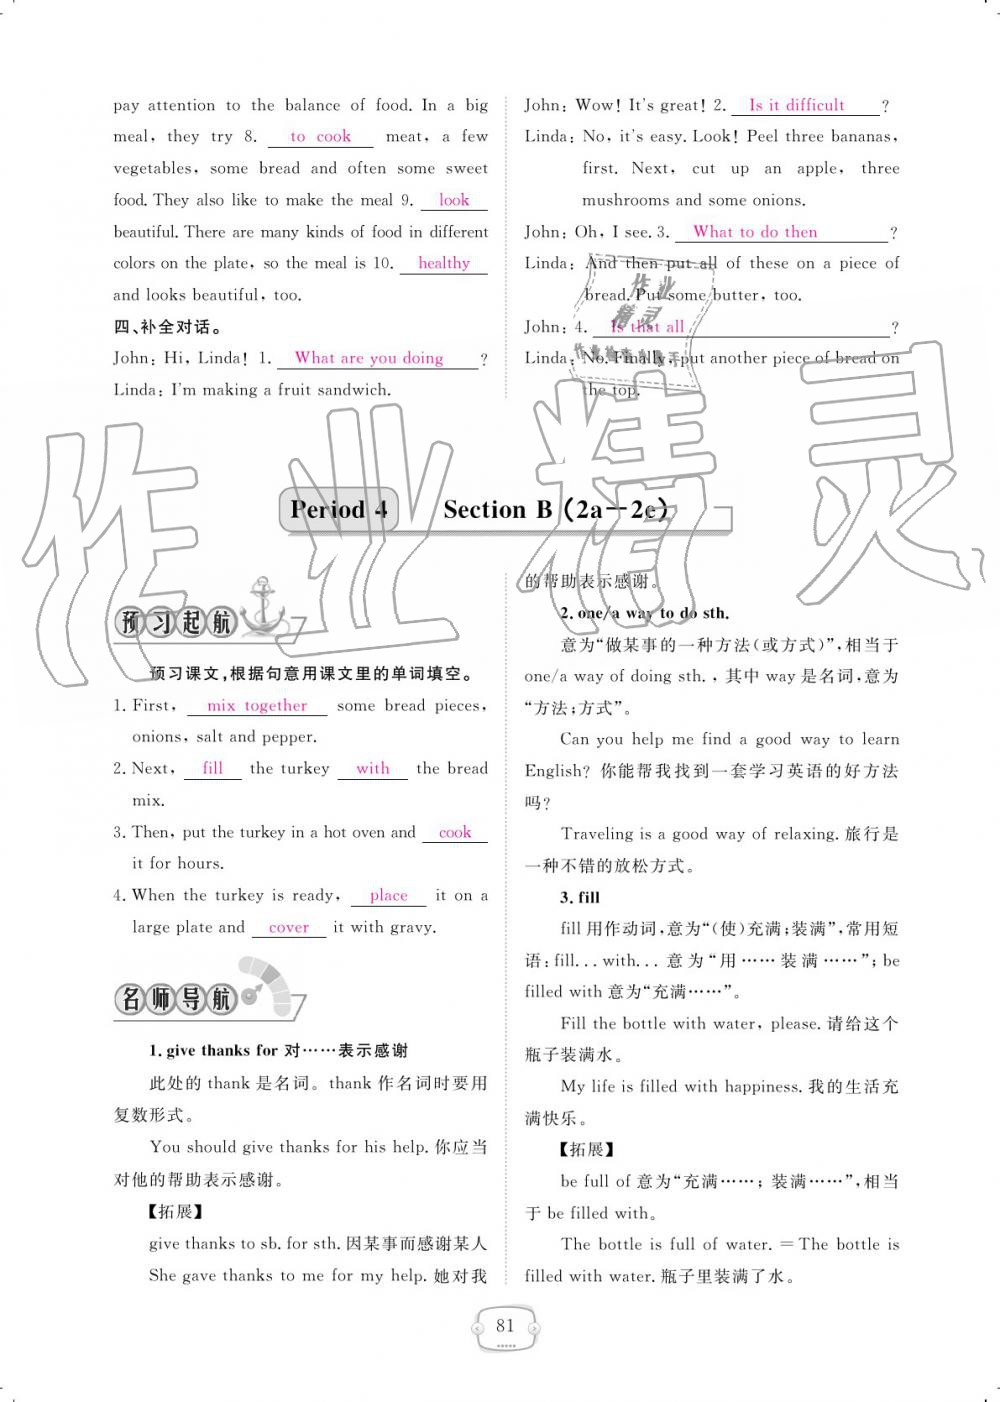 pay attention to the balance of food. In a big
meal, they try 8. to cook meat, a few
vegetables, some bread and often some sweet
food. They also like to make the meal 9. look
beautiful. There are many kinds of food in different
colors on the plate, so the meal is 10. healthy
and looks beautiful, too.
四、补全对话。
John: Hi, Linda! 1. What are you doing ?
Linda: I'm making a fruit sandwich.
John: Wow! It's great! 2. Is it difficult ?
Linda: No, it's easy. Look! Peel three bananas,
first. Next, cut up an apple, three
mushrooms and some onions.
John: Oh, I see. 3. What to do then ?
Linda: And then put all of these on a piece of
bread. Put some butter, too.
John: 4. Is that all ?
Linda: No. Finally, put another piece of bread on
the top.
作业
精灵
作业检查小助手
作业精灵
Period 4 Section B (2a—2e)
预习起航
预习课文,根据句意用课文里的单词填空。
1. First, mix together some bread pieces,
onions, salt and pepper.
2. Next, fill the turkey with the bread
mix.
3. Then, put the turkey in a hot oven and cook
it for hours.
4. When the turkey is ready, place it on a
large plate and cover it with gravy.
名师导航
1. give thanks for 对……表示感谢
此处的 thank 是名词。thank 作名词时要用
复数形式。
You should give thanks for his help. 你应当
对他的帮助表示感谢。
【拓展】
give thanks to sb. for sth. 因某事而感谢某人
She gave thanks to me for my help. 她对我
的帮助表示感谢。
2. one/a way to do sth.
意为“做某事的一种方法(或方式)”,相当于
one/a way of doing sth. ,其中 way 是名词,意为
“方法;方式”。
Can you help me find a good way to learn
English? 你能帮我找到一套学习英语的好方法
吗?
Traveling is a good way of relaxing. 旅行是
一种不错的放松方式。
3. fill
fill 用作动词,意为“(使)充满;装满”,常用短
语:fill... with... 意为“用……装满……”;be
filled with 意为“充满……”。
Fill the bottle with water, please. 请给这个
瓶子装满水。
My life is filled with happiness. 我的生活充
满快乐。
【拓展】
be full of 意为“充满……;装满……”,相当
于 be filled with。
The bottle is full of water. = The bottle is
filled with water. 瓶子里装满了水。
81